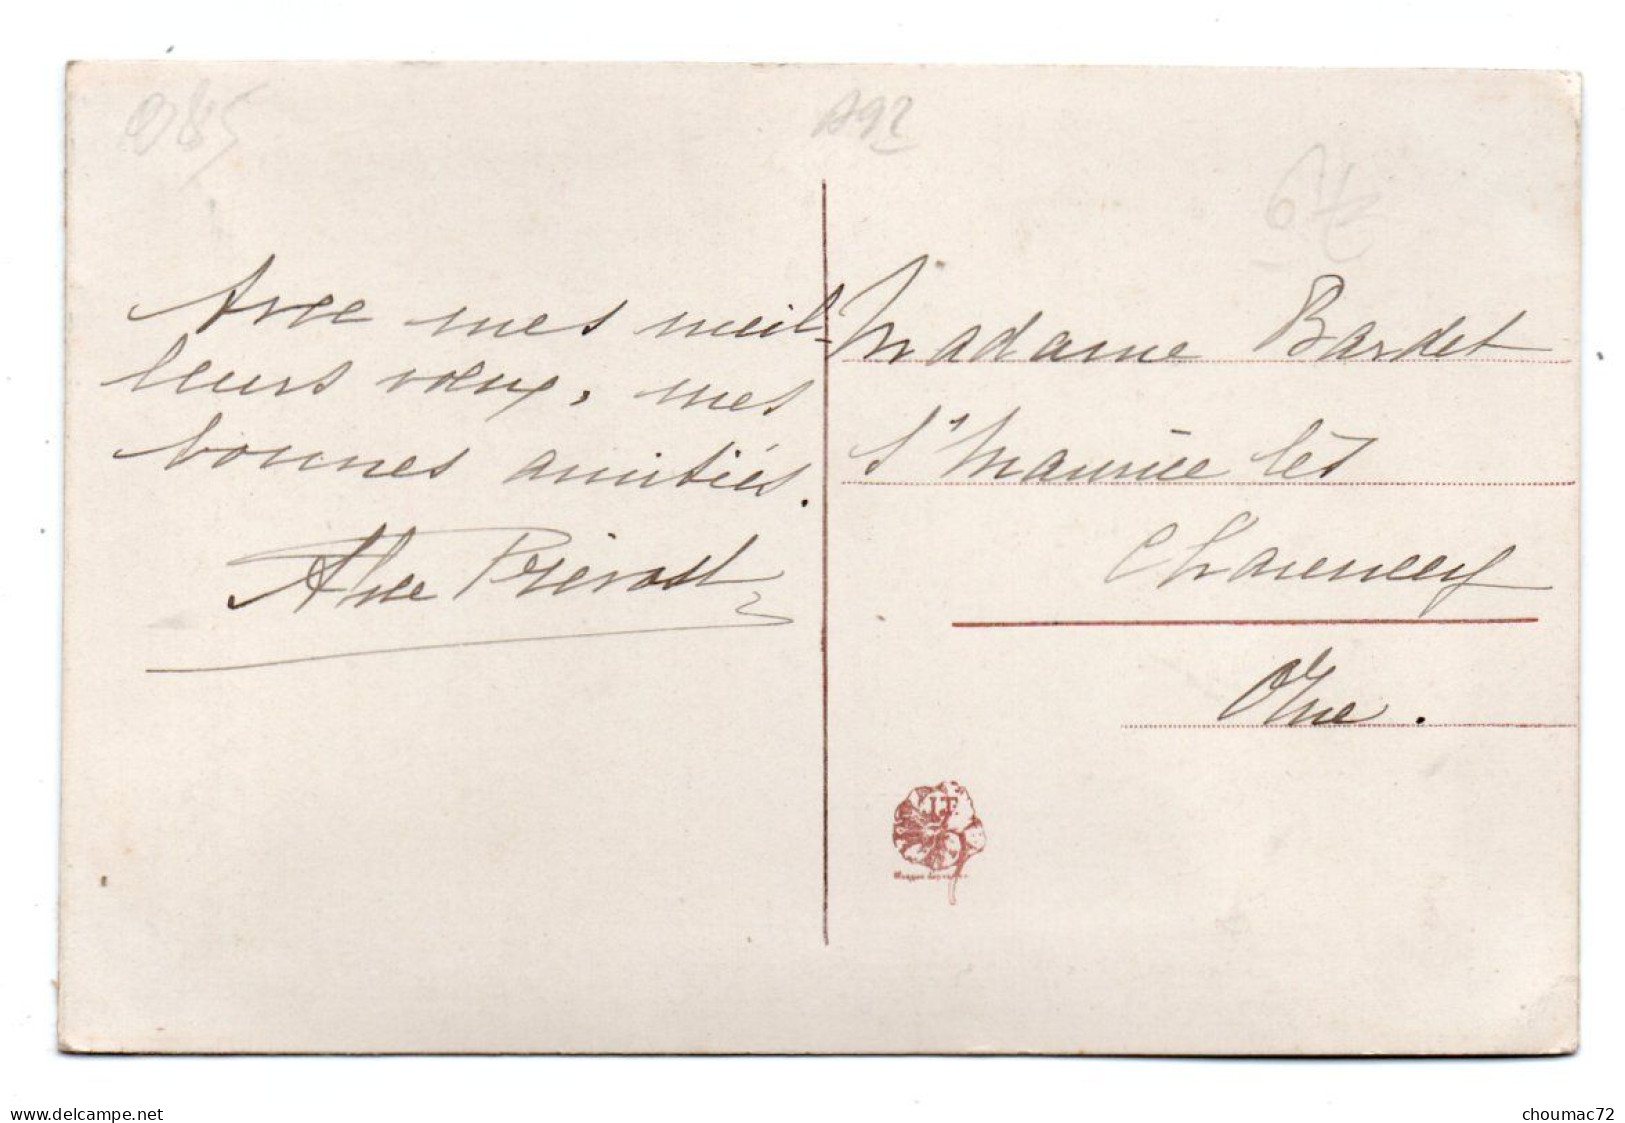 A92
Avec mes meil-
leurs vœux, mes
bonnes amitiés.
Prévost
Madame Bardet
St Maurice lès
Charencey
Orne.
J.T.
www.delcampe.net
choumac72